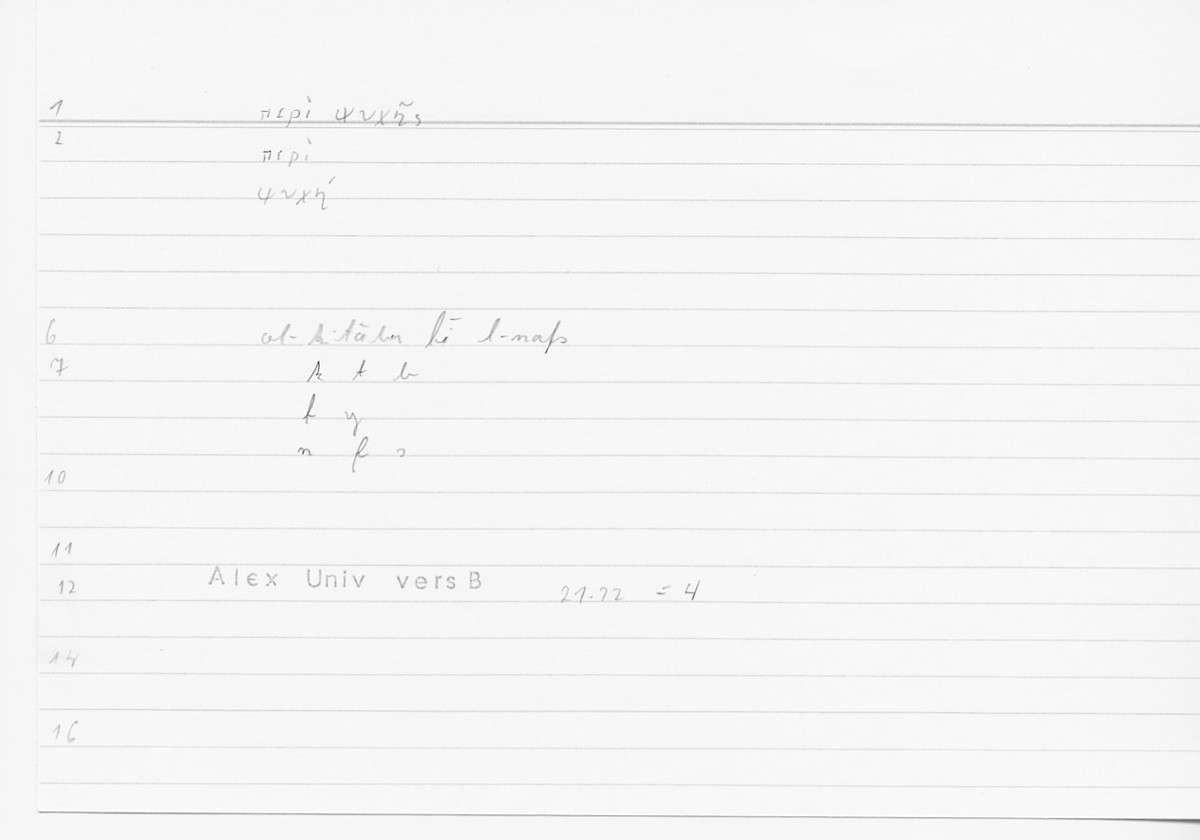 1 περὶ ψυχῆς
2 περὶ
ψυχή
6 al-kitābu fī l-nafs
7 k t b
f y
n f s
10
11
12 Alex Univ vers B 21.22 = 4
14
16